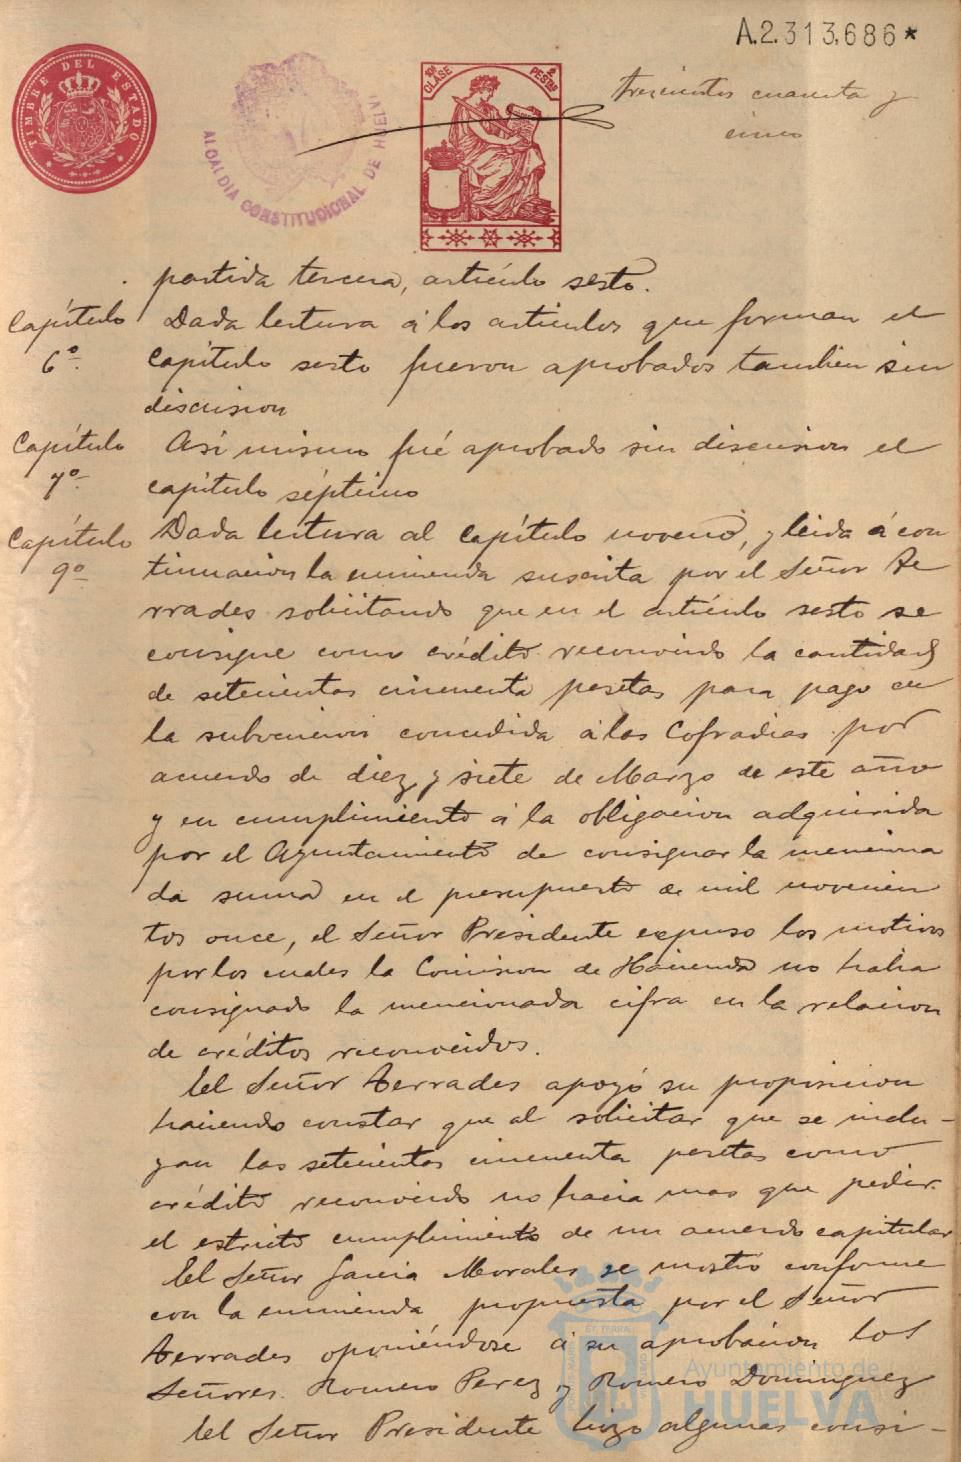 A.2.313,686*
TIMBRE DEL ESTADO
ALCALDIA CONSTITUCIONAL DE HUELVA
10ª CLASE
2 PESTAS
trescientos cuarenta y
cinco
partida tercera, artículo sesto.
Capítulo
6º
Dada lectura á los artículos que forman el
capítulo sesto fueron aprobados tambien sin
discusion
Capítulo
7º
Asi mismo fué aprobado sin discusion el
capítulo séptimo
Capítulo
9º
Dada lectura al capítulo noveno, y leida á con
tinuacion la enmienda suscrita por el Señor Te
rrades solicitando que en el artículo sesto se
consigne como crédito reconocido la cantidad
de setecientas cincuenta pesetas para pago de
la subvencion concedida á las Cofradias por
acuerdo de diez y siete de Marzo de este año
y en cumplimiento á la obligacion adquirida
por el Ayuntamiento de consignar la menciona
da suma en el presupuesto de mil novecien
tos once, el Señor Presidente expuso los motivos
por los cuales la Comision de Hacienda no habia
consignado la mencionada cifra en la relacion
de créditos reconocidos.
El Señor Terrades apoyó su proposicion
haciendo constar que al solicitar que se inclu-
yan las setecientas cincuenta pesetas como
crédito reconocido no hacia mas que pedir
el estricto cumplimiento de un acuerdo capitular
El Señor Garcia Morales se mostró conforme
con la enmienda propuesta por el Señor
Terrades oponiéndose á su aprobacion los
Señores Romero Perez y Romero Dominguez
El Señor Presidente hizo algunas consi-
Ayuntamiento de
HUELVA